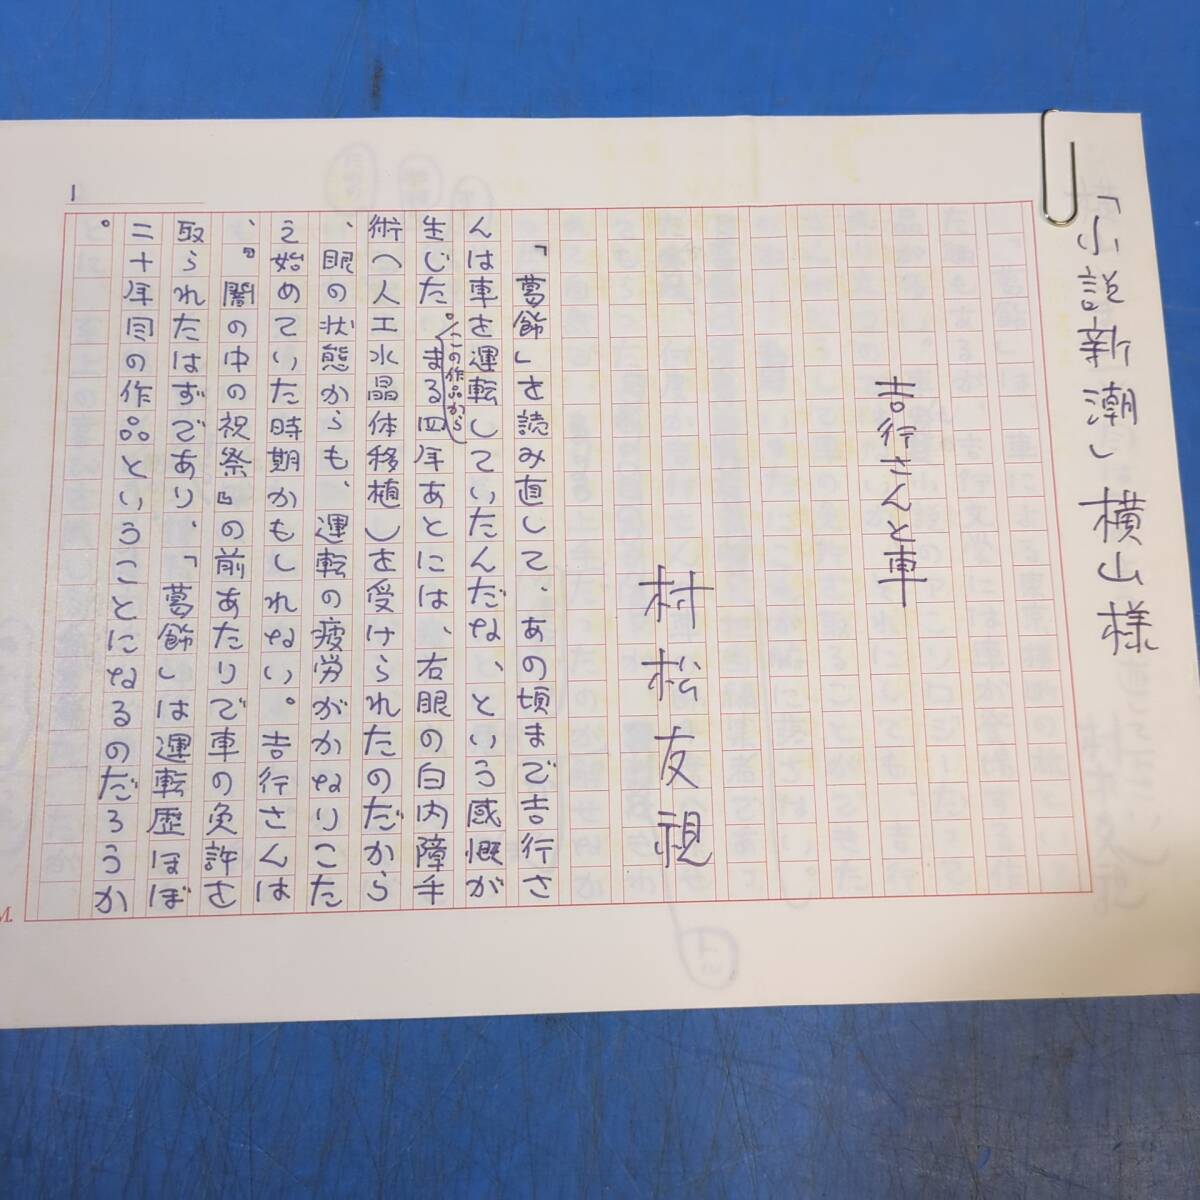 「小説新潮」横山様
吉行さんと車
村松友視
「葛飾」を読み直して、あの頃まで吉行さ
んは車を運転していたんだな、という感慨が
生じた。この作品からまる四年あとには、右眼の白内障手
術(人工水晶体移植)を受けられたのだから
、眼の状態からも、運転の疲労がかなりこた
え始めていた時期かもしれない。吉行さんは
、『闇の中の祝祭』の前あたりで車の免許を
取られたはずであり、「葛飾」は運転歴ほぼ
二十年目の作品ということになるのだろうか
。
1
M.